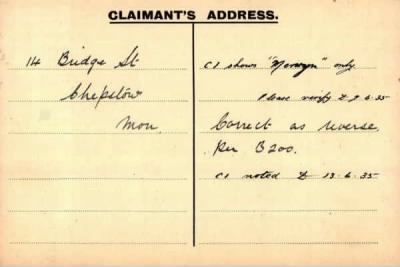 CLAIMANT'S ADDRESS.
14 Bridge St
Chepstow
Mon.
C1 shows "Mervyn" only
Please verify 7.6.35
Correct as reverse.
Per B200.
C1 noted 13.6.35